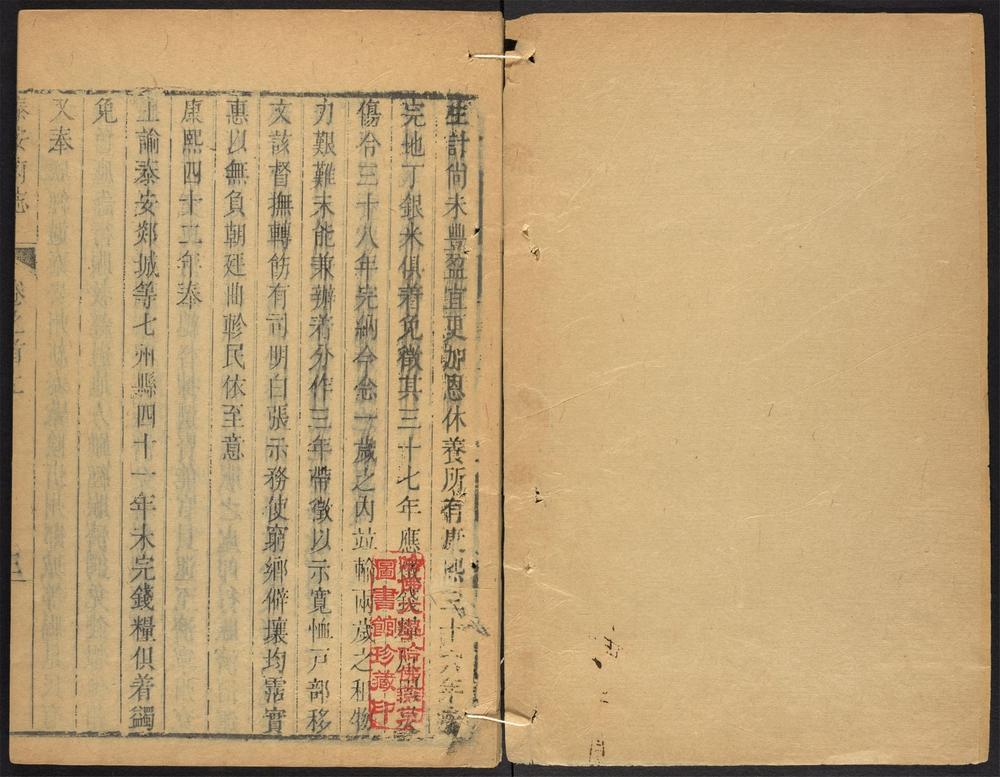 生計尚未豊盈宜更加恩休養所有康熙三十六年未
完地丁銀米俱着免徵其三十七年應徵錢糧
傷令三十八年完納今念一歲之内並輸兩歲之租物
力艱難未能兼辦着分作三年帶徵以示寬恤戶部移
文該督撫轉飭有司明白張示務使窮鄉僻壤均霑實
惠以無負朝廷曲軫民依至意
康熙四十五年奉
上諭泰安郯城等七州縣四十一年未完錢糧俱着蠲
免
又奉
泰安府志
卷之首上
三
哈佛大學哈佛燕京
圖書館珍藏印